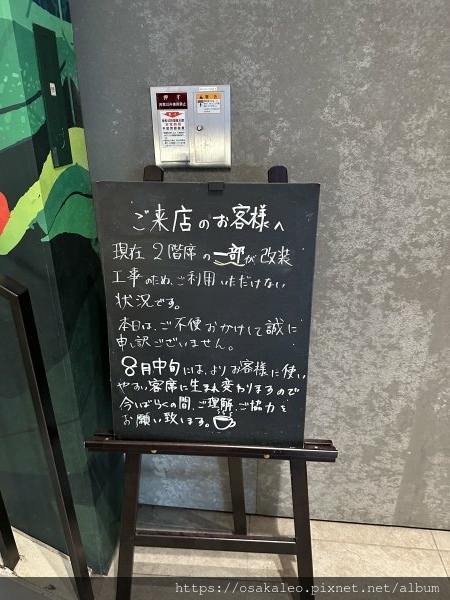 押す
ご来店のお客様へ
現在2階席の一部が改装
工事のため、ご利用いただけない
状況です。
本日は、ご不便おかけして誠に
申し訳ございません。
8月中旬には、よりお客様に使い
やすい客席に生まれ変わりますので
今しばらくの間、ご理解、ご協力を
お願い致します。
https://osakaleo.pixnet.net/album